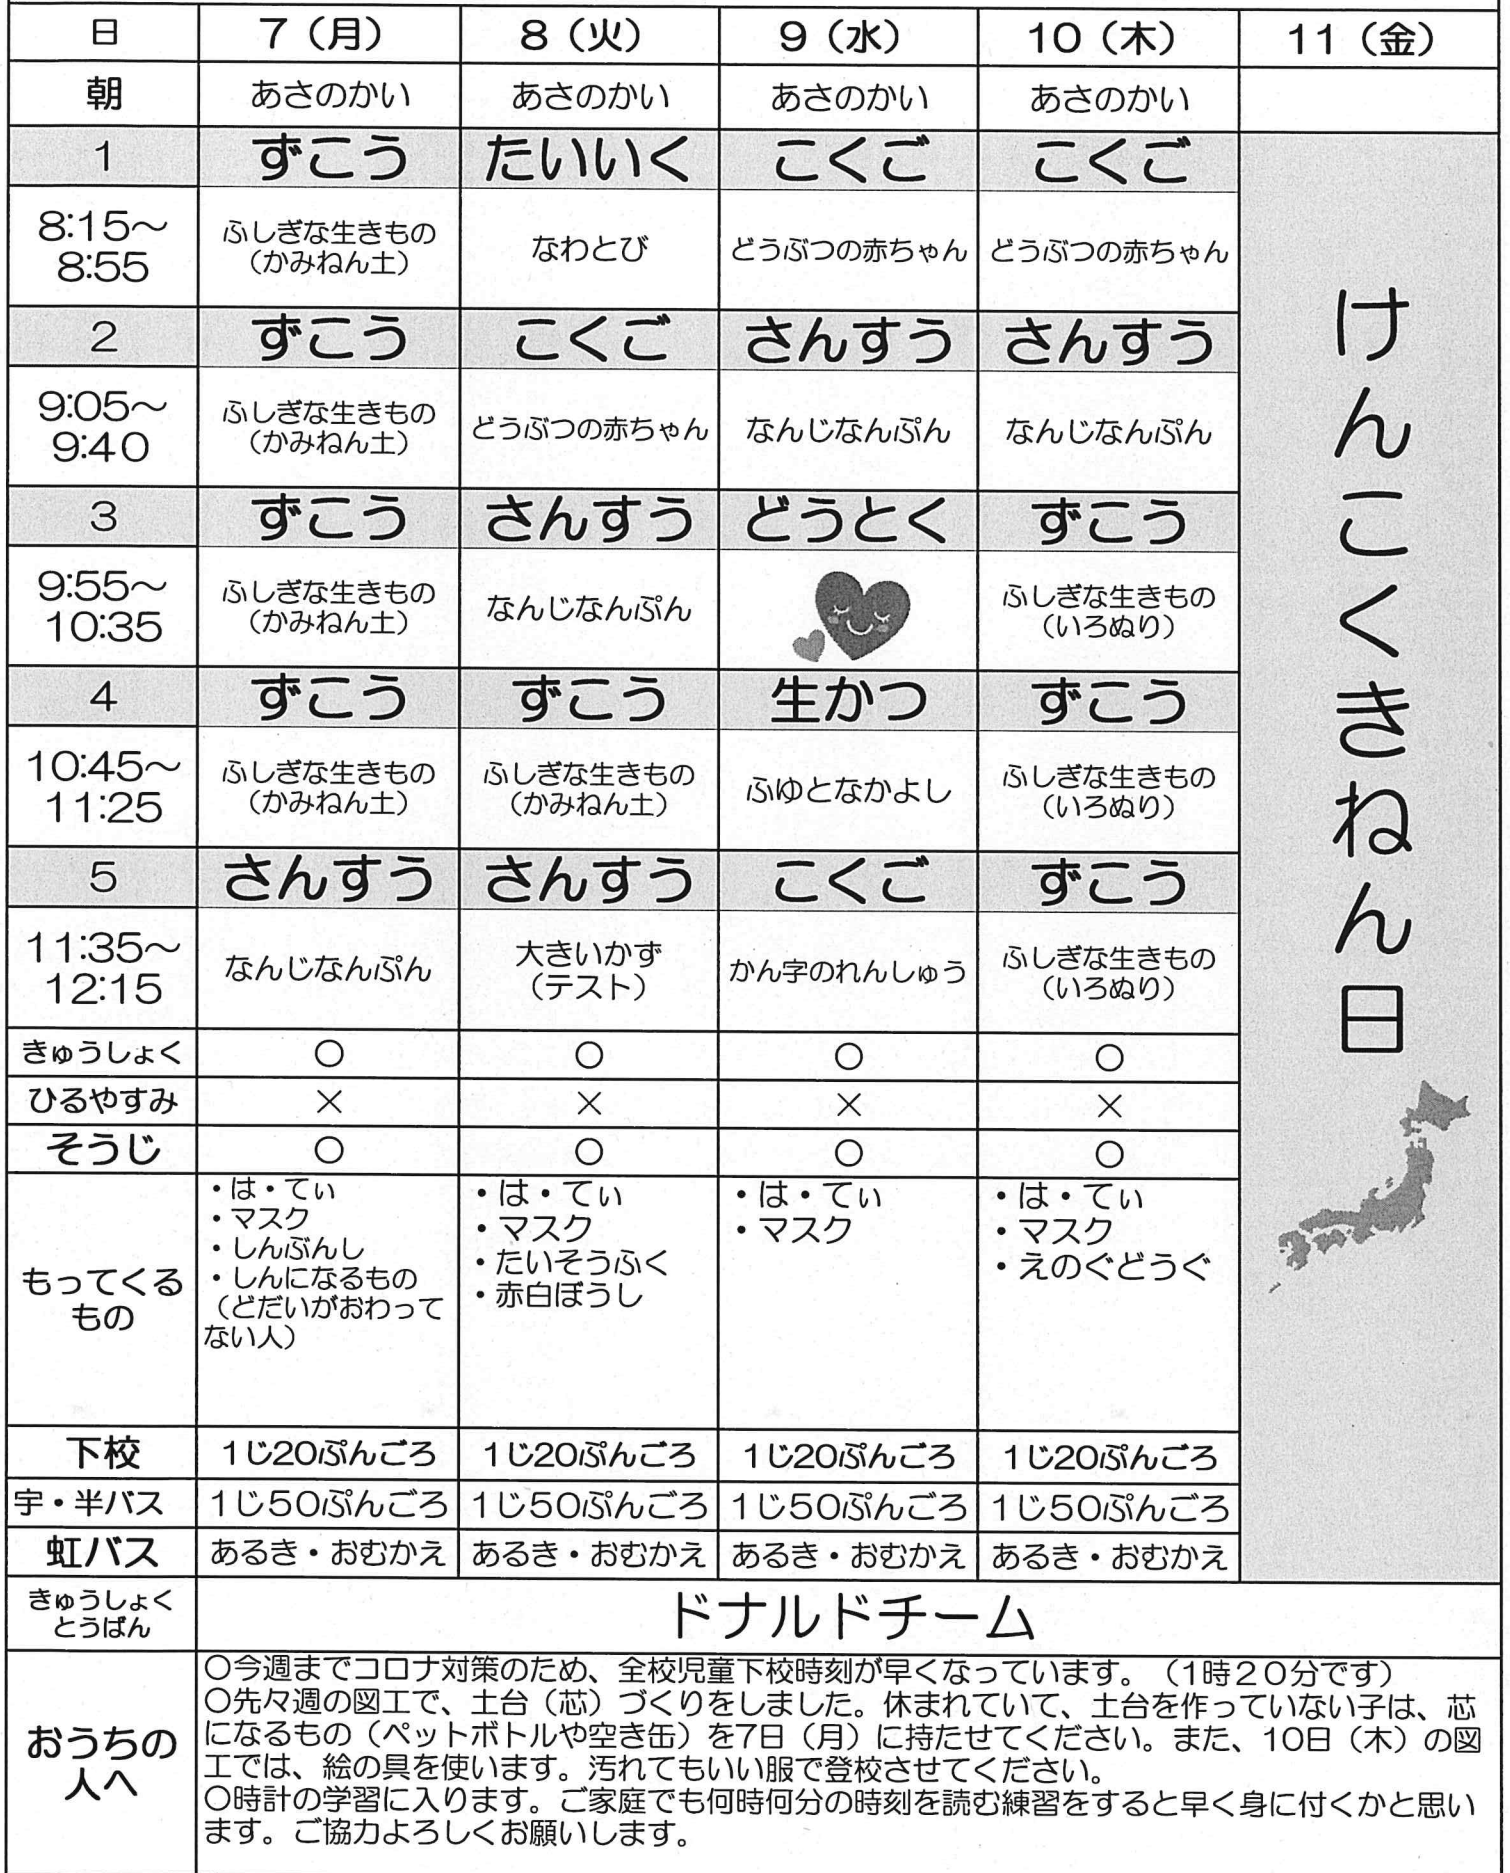 日 7（月） 8（火） 9（水） 10（木） 11（金）
朝 あさのかい あさのかい あさのかい あさのかい
1 ずこう たいいく こくご こくご
8:15～
8:55
ふしぎな生きもの
（かみねん土）
なわとび
どうぶつの赤ちゃん
どうぶつの赤ちゃん
2 ずこう こくご さんすう さんすう
9:05～
9:40
ふしぎな生きもの
（かみねん土）
どうぶつの赤ちゃん
なんじなんぷん
なんじなんぷん
3 ずこう さんすう どうとく ずこう
9:55～
10:35
ふしぎな生きもの
（かみねん土）
なんじなんぷん
ふしぎな生きもの
（いろぬり）
4 ずこう ずこう 生かつ ずこう
10:45～
11:25
ふしぎな生きもの
（かみねん土）
ふしぎな生きもの
（かみねん土）
ふゆとなかよし
ふしぎな生きもの
（いろぬり）
5 さんすう さんすう こくご ずこう
11:35～
12:15
なんじなんぷん
大きいかず
（テスト）
かん字のれんしゅう
ふしぎな生きもの
（いろぬり）
けんこくきねん日
きゅうしょく ○ ○ ○ ○
ひるやすみ × × × ×
そうじ ○ ○ ○ ○
もってくる
もの
・は・てぃ
・マスク
・しんぶんし
・しんになるもの
（どだいがおわって
ない人）
・は・てぃ
・マスク
・たいそうふく
・赤白ぼうし
・は・てぃ
・マスク
・は・てぃ
・マスク
・えのぐどうぐ
下校 1じ20ぷんごろ 1じ20ぷんごろ 1じ20ぷんごろ 1じ20ぷんごろ
宇・半バス 1じ50ぷんごろ 1じ50ぷんごろ 1じ50ぷんごろ 1じ50ぷんごろ
虹バス あるき・おむかえ あるき・おむかえ あるき・おむかえ あるき・おむかえ
きゅうしょく
とうばん
ドナルドチーム
おうちの
人へ
○今週までコロナ対策のため、全校児童下校時刻が早くなっています。（1時20分です）
○先々週の図工で、土台（芯）づくりをしました。休まれていて、土台を作っていない子は、芯
になるもの（ペットボトルや空き缶）を7日（月）に持たせてください。また、10日（木）の図
工では、絵の具を使います。汚れてもいい服で登校させてください。
○時計の学習に入ります。ご家庭でも何時何分の時刻を読む練習をすると早く身に付くかと思い
ます。ご協力よろしくお願いします。